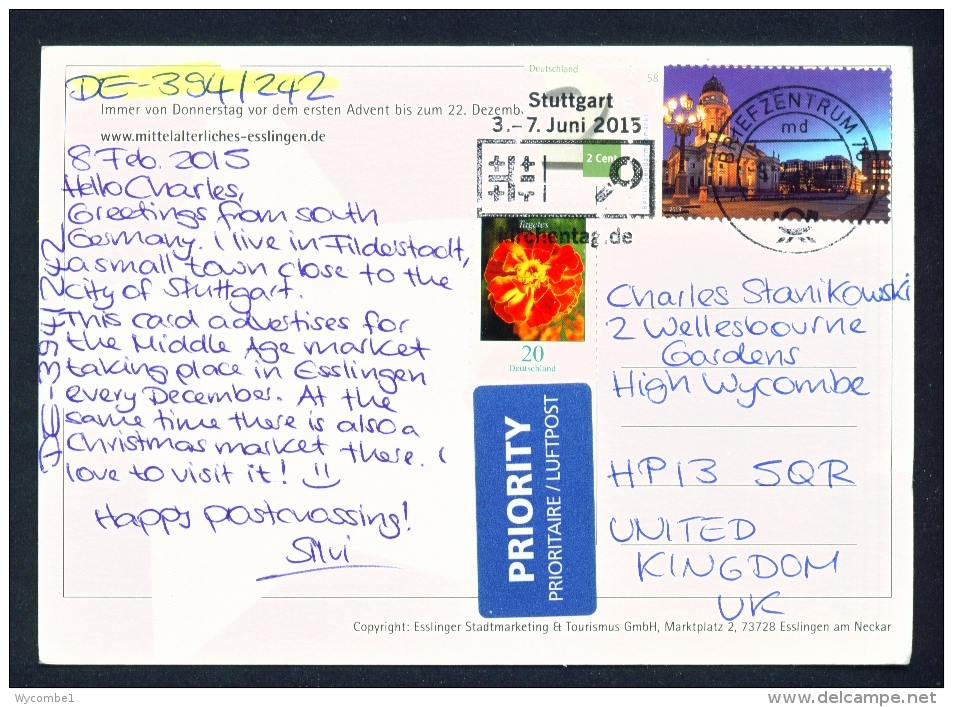 DE-394/242
Immer von Donnerstag vor dem ersten Advent bis zum 22. Dezemb.
www.mittelalterliches-esslingen.de
8 Feb. 2015
Hello Charles,
Greetings from south
Germany. I live in Filderstadt,
a small town close to the
city of Stuttgart.
This card advertises for
the Middle Age market
taking place in Esslingen
every December. At the
same time there is also a
Christmas market there. I
love to visit it!
Happy postcrossing!
Silvi
Deutschland
58
Stuttgart
3.–7. Juni 2015
2 Cent
kirchentag.de
BRIEFZENTRUM
md
Tagetes
20
Deutschland
PRIORITY
PRIORITAIRE / LUFTPOST
Charles Stanikowski
2 Wellesbourne
Gardens
High Wycombe
HP13 5QR
UNITED
KINGDOM
UK
Copyright: Esslinger Stadtmarketing & Tourismus GmbH, Marktplatz 2, 73728 Esslingen am Neckar
Wycombe1
www.delcampe.net